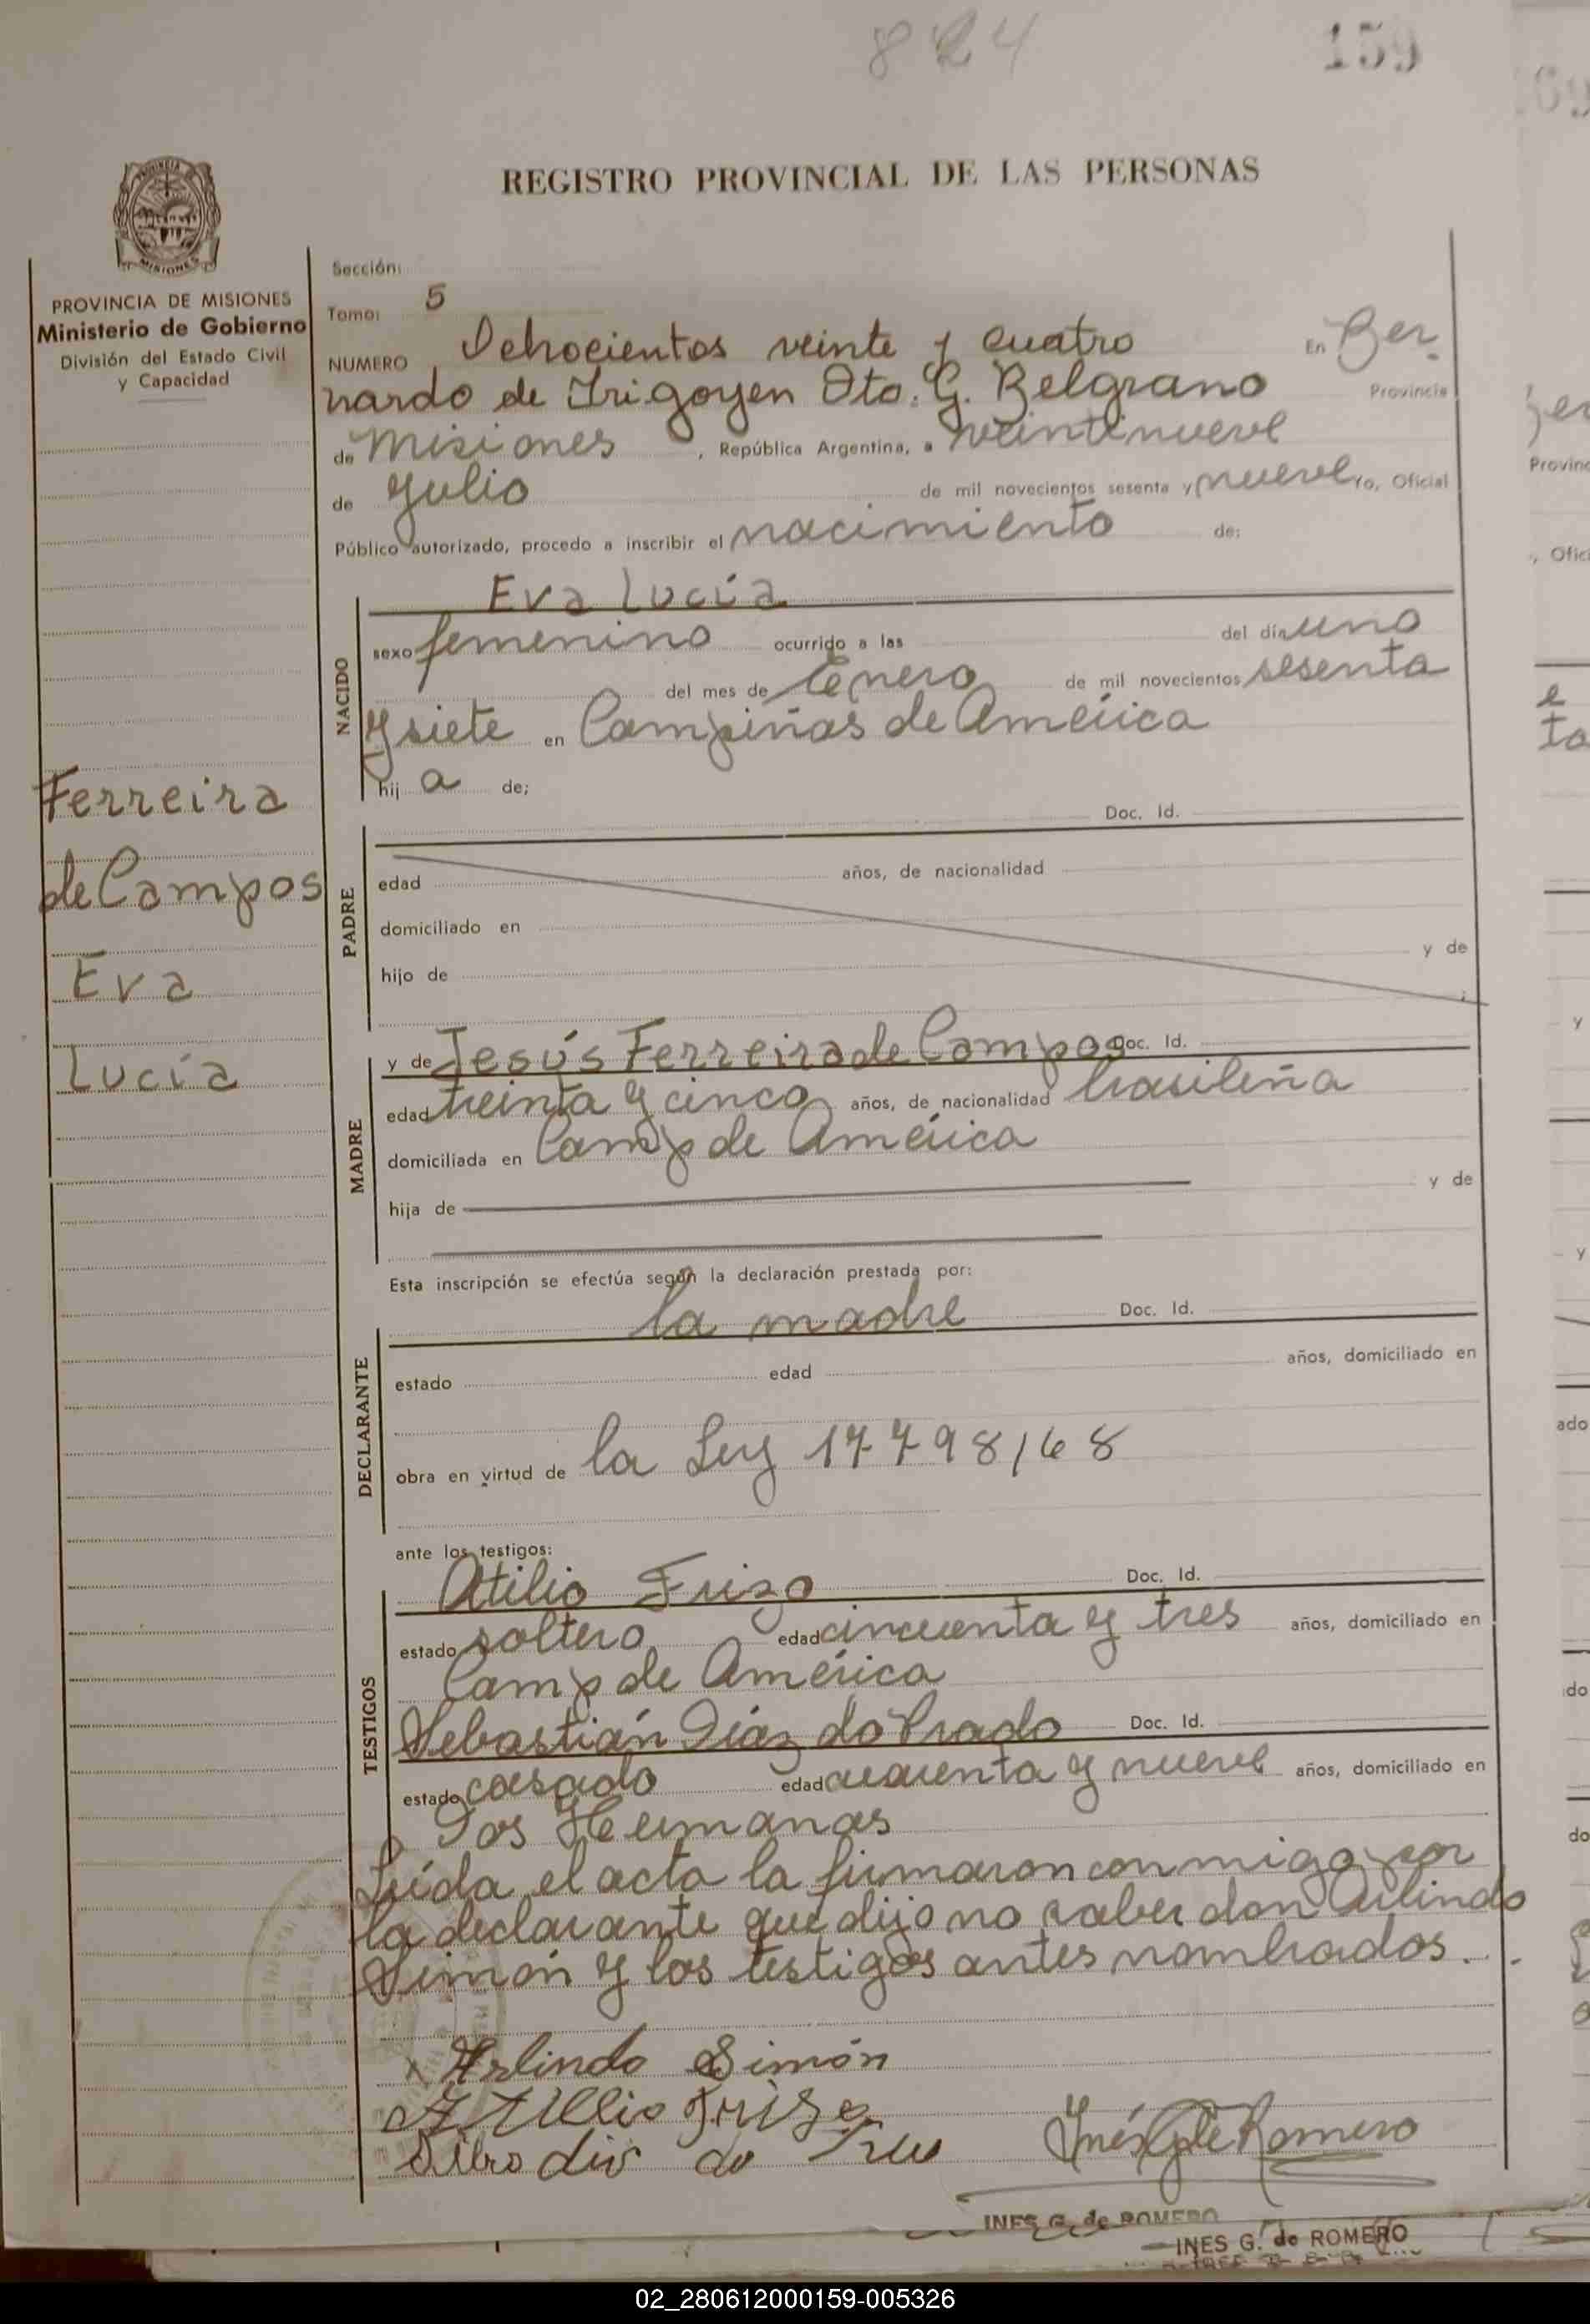 824
159
REGISTRO PROVINCIAL DE LAS PERSONAS
MISIONES
PROVINCIA DE MISIONES
Ministerio de Gobierno
División del Estado Civil
y Capacidad
Sección:
Tomo: 5
NUMERO Ochocientos veinte y cuatro En Ber
nardo de Irigoyen Dto. G. Belgrano Provincia
de Misiones, República Argentina, a veintinueve
de Julio de mil novecientos sesenta y nueve Yo, Oficial
Público autorizado, procedo a inscribir el nacimiento de:
NACIDO
Eva Lucía
sexo femenino ocurrido a las del día uno
del mes de Enero de mil novecientos sesenta
y siete en Campiñas de América
hij a de;
Ferreira
de Campos
Eva
Lucía
PADRE
Doc. Id.
edad años, de nacionalidad
domiciliado en
hijo de y de
MADRE
y de Jesús Ferreira de Campos Doc. Id.
edad treinta y cinco años, de nacionalidad brasileña
domiciliada en Camp de América
hija de y de
Esta inscripción se efectúa según la declaración prestada por:
DECLARANTE
la madre Doc. Id.
estado edad años, domiciliado en
obra en virtud de la Ley 17798/68
ante los testigos:
TESTIGOS
Atilio Frizo Doc. Id.
estado soltero edad cincuenta y tres años, domiciliado en
Camp de América
Sebastián Díaz do Prado Doc. Id.
estado casado edad cuarenta y nueve años, domiciliado en
Dos Hermanas
Leída el acta la firmaron conmigo por
la declarante que dijo no saber don Arlindo
Simón y los testigos antes nombrados.
Arlindo Simón
Inés G de Romero
INES G. de ROMERO
INES G. de ROMERO
02_280612000159-005326